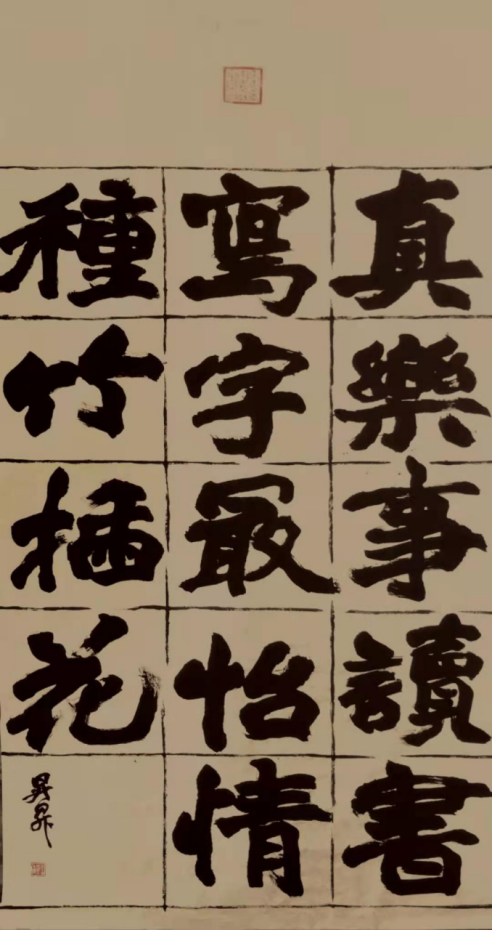 真樂事讀書
寫字最怡情
種竹插花